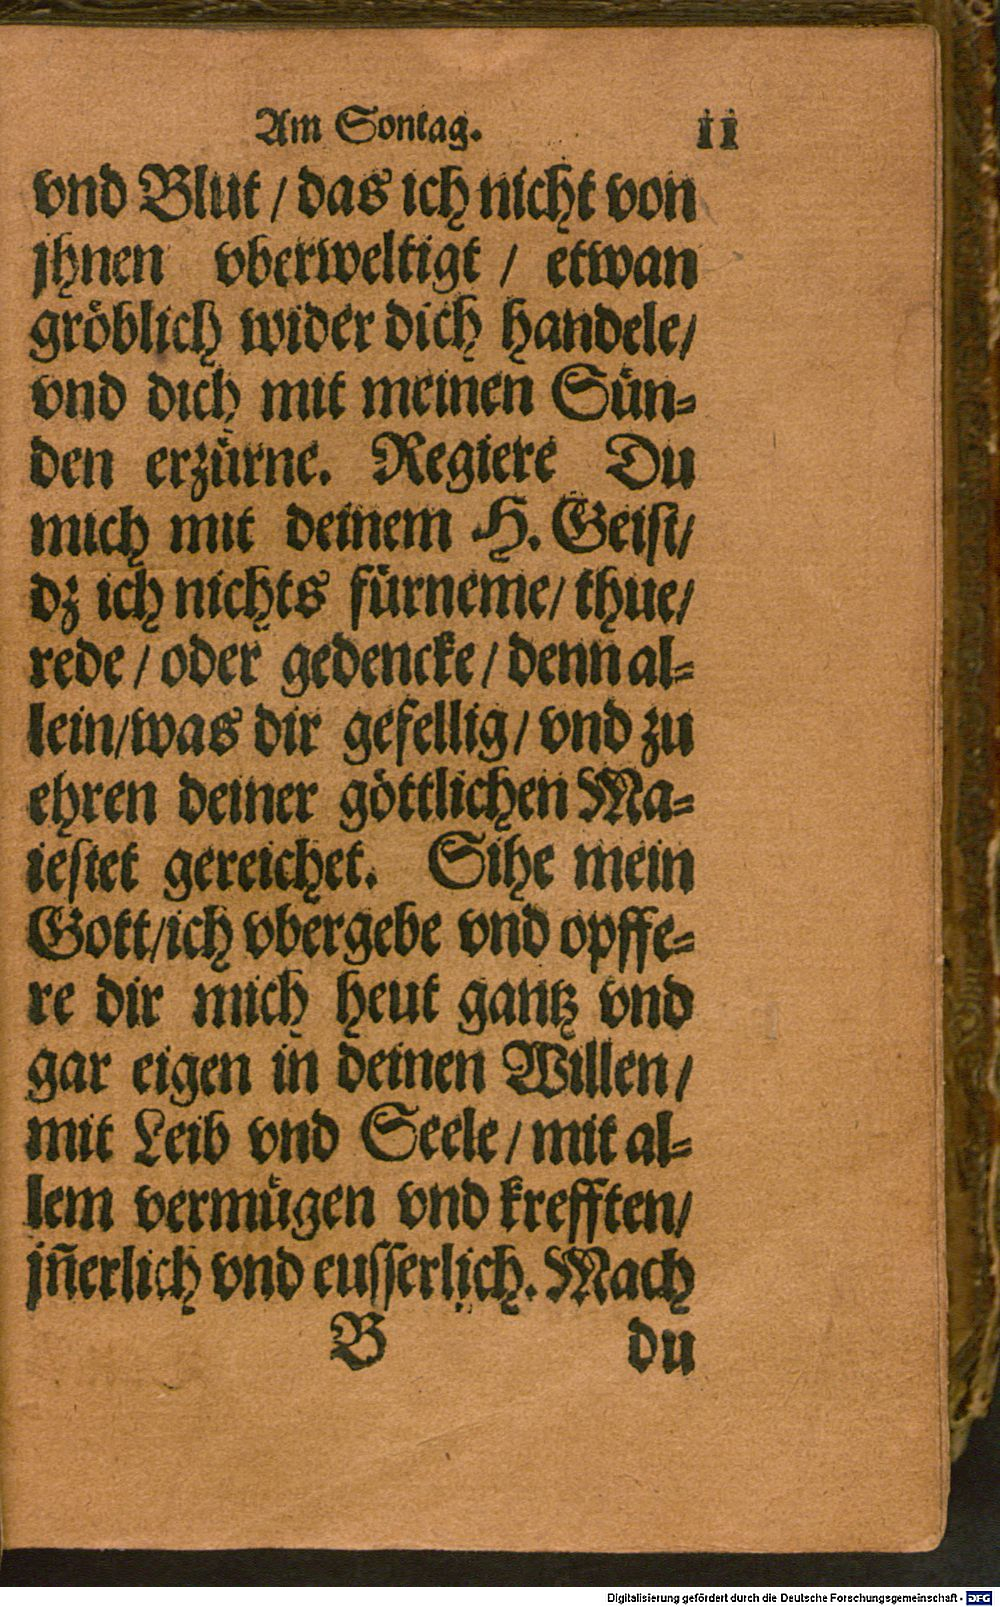 Am Sontag. 11
vnd Blut / das ich nicht von
jhnen vberweltigt / etwan
gröblich wider dich handele/
vnd dich mit meinen Sün-
den erzürne. Regiere Du
mich mit deinem H. Geist/
dz ich nichts fürneme/ thue/
rede / oder gedencke / denn al-
lein/was dir gefellig/ vnd zu
ehren deiner göttlichen Ma-
iestet gereichet. Sihe mein
Gott/ich vbergebe vnd opffe-
re dir mich heut gantz vnd
gar eigen in deinen Willen /
mit Leib vnd Seele / mit al-
lem vermügen vnd krefften/
jñerlich vnd eusserlich. Mach
B du
Digitalisierung gefördert durch die Deutsche Forschungsgemeinschaft - DFG